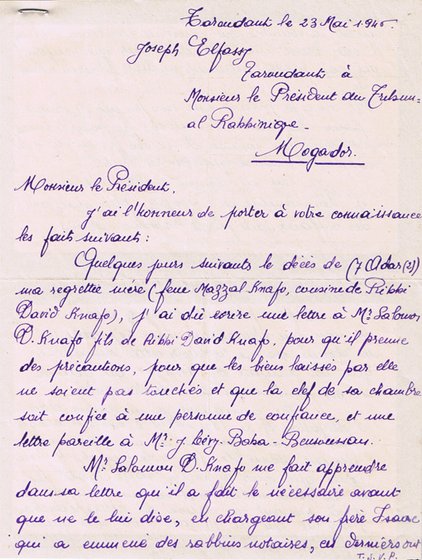 Taroudant le 23 Mai 1946.
Joseph Elfassy
Taroudant à
Monsieur le Président du Tribun-
al Rabbinique -
Mogador.
Monsieur le Président,
J'ai l'honneur de porter à votre connaissance
les faits suivant :
Quelques jours suivants le décès de (7 Adar (2))
ma regrettée mère (feue Mazzal Knafo, cousine de Ribbi
David Knafo), j'ai dû écrire une lettre à Mr. Salomon
D. Knafo fils de Ribbi David Knafo, pour qu'il prenne
des précautions, pour que les biens laissés par elle
ne soient pas touchés et que la clef de sa chambre
soit confiée à une personne de confiance, et une
lettre pareille à Mr. J. Lévy-Boha-Bensoussan.
Mr. Salomon D. Knafo me fait apprendre
dans sa lettre qu'il a fait le nécessaire avant
que ne le lui dise, en chargeant son frère Isaac
qui a emmené des rabbins notaires, ces derniers ont
T.S.V.P.